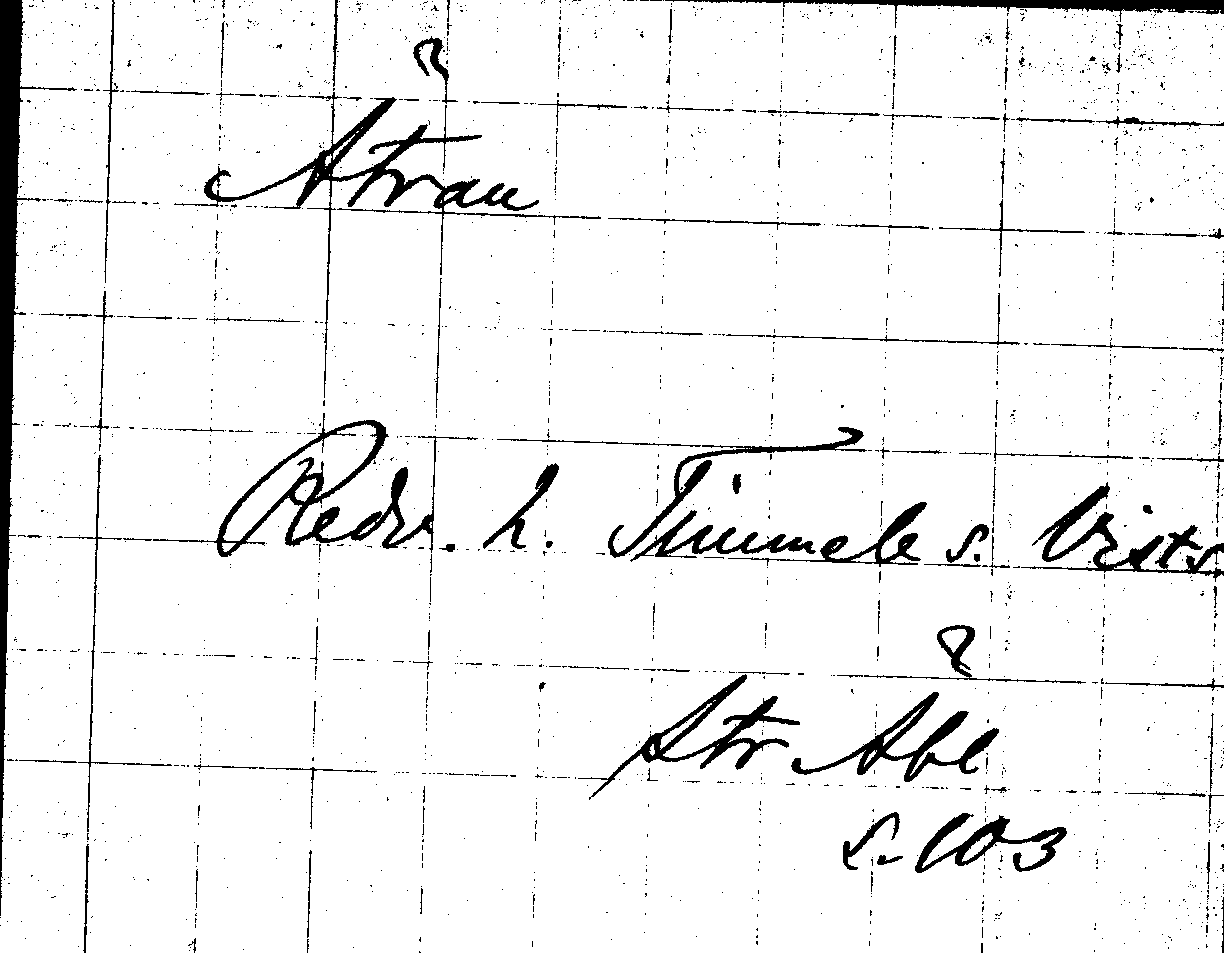 Åtran
Redv. h. Timmele s. Vists.
Str
s. 103